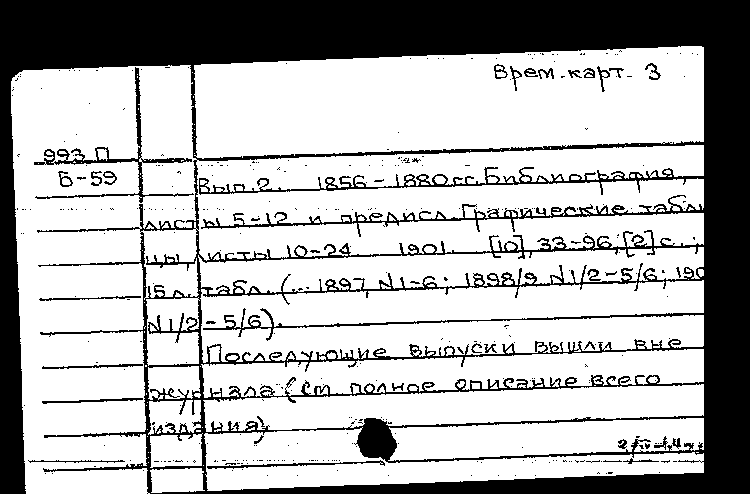 Врем. карт. 3
993 П
Б-59
Вып. 2. 1856-1880 гг. Библиография,
листы 5-12 и предисл. Графические табли
цы, листы 10-24 1901. [10], 33-96, [2] с.;
15 л. табл. (... 1897, N1-6; 1898/9 N1/2-5/6; 190
N1/2-5/6).
Последующие выпуски вышли вне
журнала (см. полное описание всего
издания)